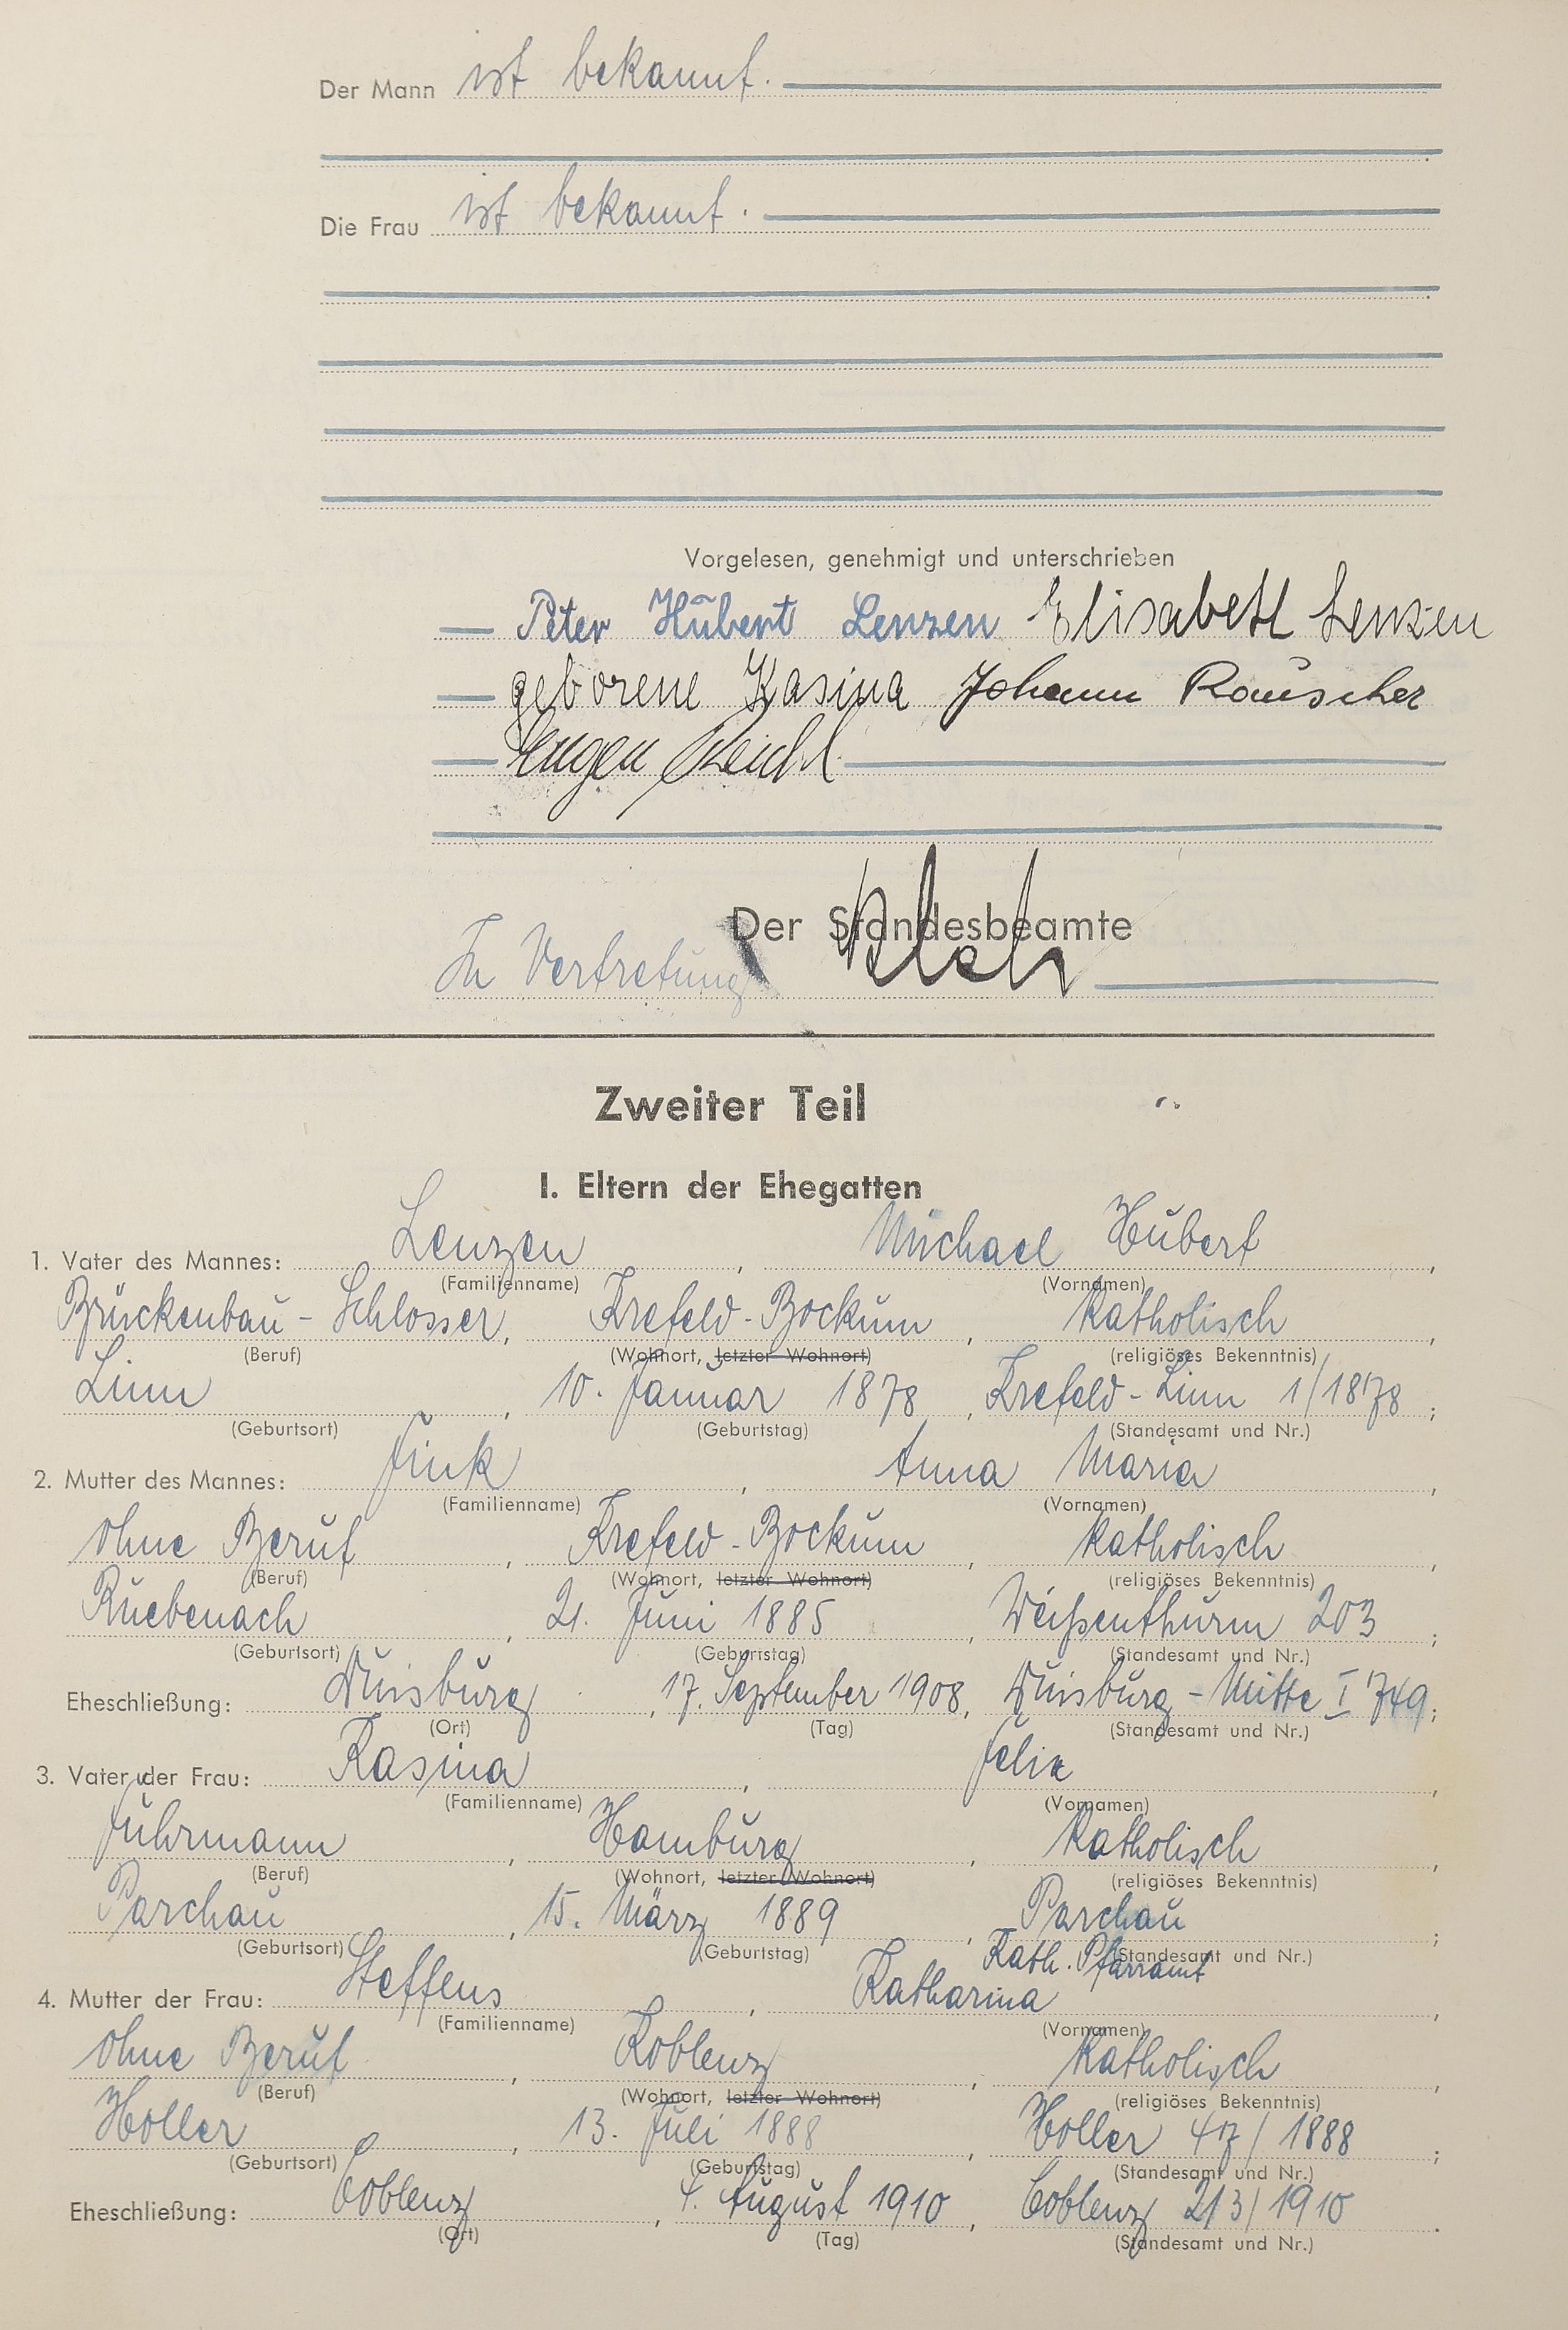 Der Mann ist bekannt.
Die Frau ist bekannt.
Vorgelesen, genehmigt und unterschrieben
— Peter Hubert Lenzen Elisabeth Lenzen
— geborene Kasina Johann Rauscher
— Eugen
Der Standesbeamte
In Vertretung
Zweiter Teil
I. Eltern der Ehegatten
1. Vater des Mannes: Lenzen, Michael Hubert,
(Familienname) (Vornamen)
Brückenbau - Schlosser, Krefeld - Bockum, katholisch,
(Beruf) (Wohnort, letzter Wohnort) (religiöses Bekenntnis)
Linn, 10. Januar 1878, Krefeld - Linn 1/1878;
(Geburtsort) (Geburtstag) (Standesamt und Nr.)
2. Mutter des Mannes: Fink, Anna Maria,
(Familienname) (Vornamen)
ohne Beruf, Krefeld - Bockum, katholisch,
(Beruf) (Wohnort, letzter Wohnort) (religiöses Bekenntnis)
Ruebenach, 21. Juni 1885, Weißenthurm 203;
(Geburtsort) (Geburtstag) (Standesamt und Nr.)
Eheschließung: Duisburg, 17. September 1908, Duisburg - Mitte I 749;
(Ort) (Tag) (Standesamt und Nr.)
3. Vater der Frau: Kasina, Felix,
(Familienname) (Vornamen)
Fuhrmann, Hamburg, katholisch,
(Beruf) (Wohnort, letzter Wohnort) (religiöses Bekenntnis)
Parchau, 15. März 1889, Parchau;
(Geburtsort) (Geburtstag) (Standesamt und Nr.)
Kath. Pfarramt
4. Mutter der Frau: Steffens, Katharina,
(Familienname) (Vornamen)
ohne Beruf, Koblenz, katholisch,
(Beruf) (Wohnort, letzter Wohnort) (religiöses Bekenntnis)
Holler, 13. Juli 1888, Holler 47/1888;
(Geburtsort) (Geburtstag) (Standesamt und Nr.)
Eheschließung: Coblenz, 4. August 1910, Coblenz 213/1910.
(Ort) (Tag) (Standesamt und Nr.)